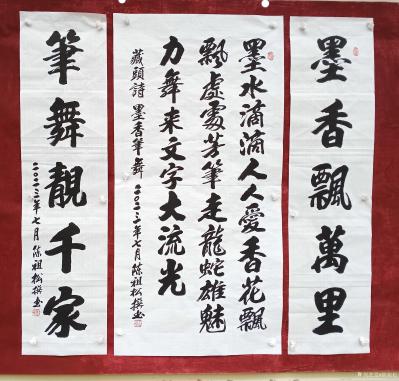 墨香飄萬里
墨水滴滴人人愛香花飄
飄處處芳筆走龍蛇雄魅
力舞来文字大流光
藏頭詩 墨香筆舞 二〇二三年七月 陈祖松撰書
筆舞靚千家
二〇二三年七月 陈祖松撰書